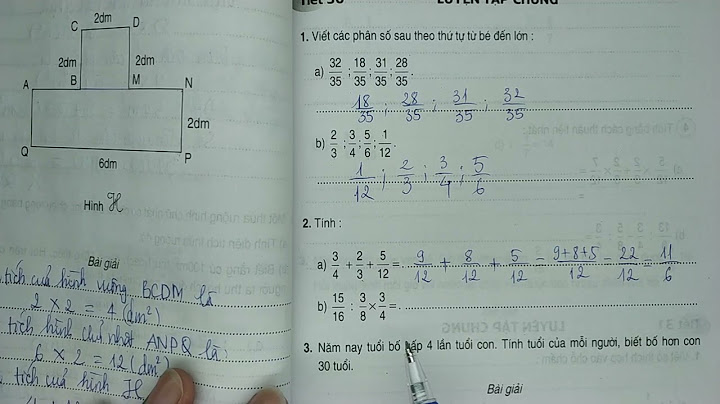 C 2dm D
2dm 2dm
A B M N
2dm
Q P
6dm
Hình H
Bài giải
tích cuả hình vuông BCDM là
2 × 2 = 4 (dm²)
tích hình chữ nhật ANPQ là
6 × 2 = 12 (dm²)
tích cuả hình H
LUYỆN TẬP CHUNG
1. Viết các phân số sau theo thứ tự từ bé đến lớn :
a) 32/35 ; 18/35 ; 31/35 ; 28/35 .
18/35 ; 28/35 ; 31/35 ; 32/35
b) 2/3 ; 3/4 ; 5/6 ; 1/12 .
1/12 ; 2/3 ; 3/4 ; 5/6
2. Tính :
a) 3/4 + 2/3 + 5/12 = 9/12 + 8/12 + 5/12 = 9+8+5/12 = 22/12 = 11/6
b) 15/16 : 3/8 × 3/4 =
3. Năm nay tuổi bố gấp 4 lần tuổi con. Tính tuổi của mỗi người, biết bố hơn con
30 tuổi.
Bài giải